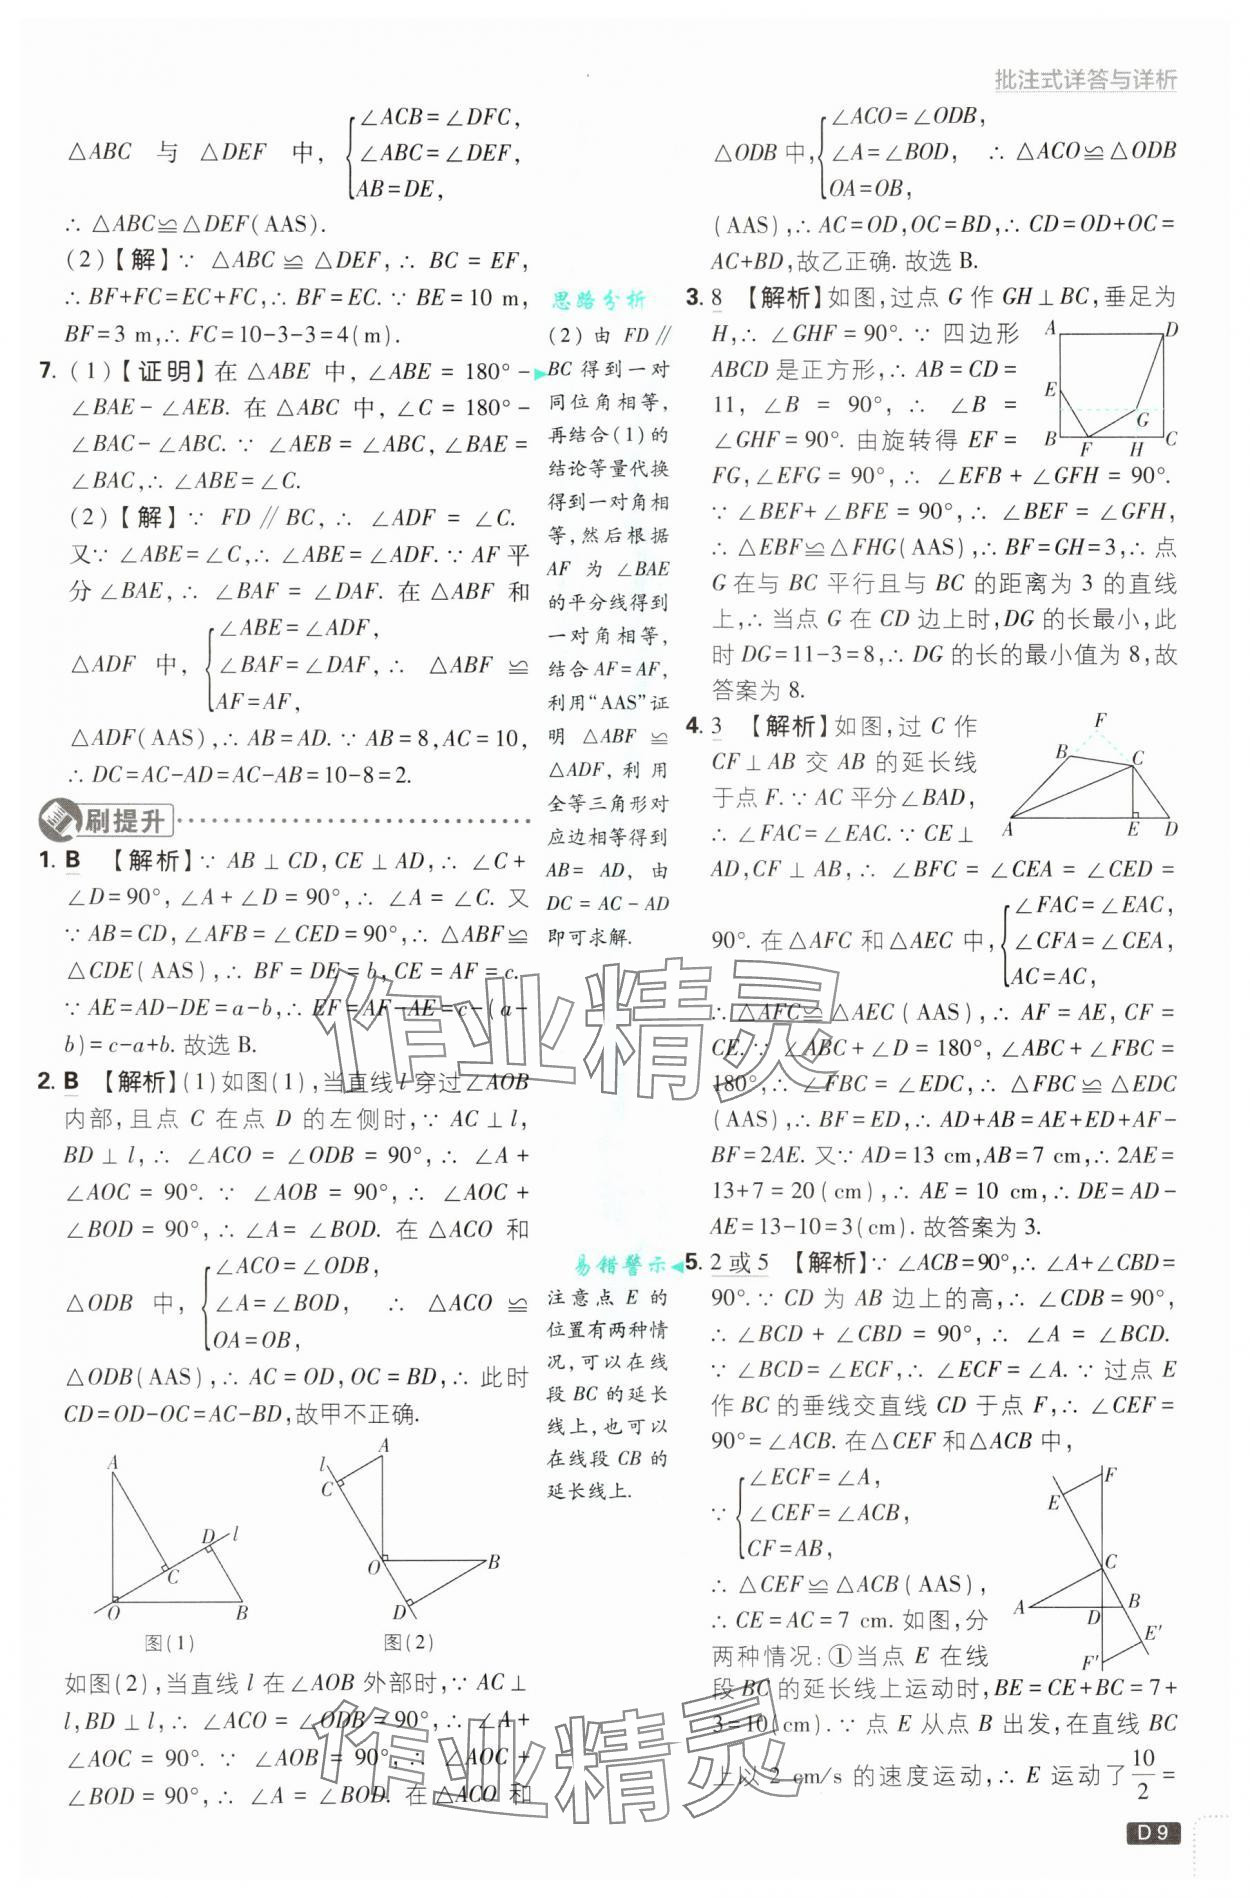 批注式详答与详析
△ABC 与 △DEF 中,
∠ACB=∠DFC,
∠ABC=∠DEF,
AB=DE,
∴ △ABC≌△DEF(AAS).
(2)【解】∵ △ABC ≌ △DEF, ∴ BC = EF,
∴ BF+FC=EC+FC, ∴ BF=EC. ∵ BE=10 m,
BF=3 m, ∴ FC=10-3-3=4(m).
7. (1)【证明】在 △ABE 中, ∠ABE = 180° -
∠BAE-∠AEB. 在 △ABC 中, ∠C = 180° -
∠BAC-∠ABC. ∵ ∠AEB = ∠ABC, ∠BAE =
∠BAC, ∴ ∠ABE=∠C.
(2)【解】∵ FD∥BC, ∴ ∠ADF = ∠C.
又∵ ∠ABE=∠C, ∴ ∠ABE=∠ADF. ∵ AF 平
分∠BAE, ∴ ∠BAF = ∠DAF. 在 △ABF 和
△ADF 中,
∠ABE=∠ADF,
∠BAF=∠DAF, ∴ △ABF ≌
AF=AF,
△ADF(AAS), ∴ AB=AD. ∵ AB=8, AC=10,
∴ DC=AC-AD=AC-AB=10-8=2.
刷提升
1. B 【解析】∵ AB⊥CD, CE⊥AD, ∴ ∠C+
∠D=90°, ∠A+∠D=90°, ∴ ∠A=∠C. 又
∵ AB=CD, ∠AFB=∠CED=90°, ∴ △ABF≌
△CDE(AAS), ∴ BF=DE=b, CE=AF=c.
∵ AE=AD-DE=a-b, ∴ EF=AF-AE=c-(a-
b)=c-a+b. 故选 B.
2. B 【解析】(1)如图(1), 当直线 l 穿过∠AOB
内部, 且点 C 在点 D 的左侧时, ∵ AC⊥l,
BD⊥l, ∴ ∠ACO = ∠ODB = 90°, ∴ ∠A+
∠AOC = 90°. ∵ ∠AOB = 90°, ∴ ∠AOC +
∠BOD = 90°, ∴ ∠A = ∠BOD. 在 △ACO 和
△ODB 中,
∠ACO=∠ODB,
∠A=∠BOD, ∴ △ACO ≌
OA=OB,
△ODB(AAS), ∴ AC=OD, OC=BD, ∴ 此时
CD=OD-OC=AC-BD, 故甲不正确.
A
D
l
C
O
B
图(1)
l
A
C
O
B
D
图(2)
如图(2), 当直线 l 在∠AOB 外部时, ∵ AC⊥
l, BD⊥l, ∴ ∠ACO=∠ODB=90°, ∴ ∠A+
∠AOC = 90°. ∵ ∠AOB = 90°, ∴ ∠AOC +
∠BOD = 90°, ∴ ∠A = ∠BOD. 在 △ACO 和
思路分析
(2) 由 FD∥
BC 得到一对
同位角相等,
再结合(1)的
结论等量代换
得到一对角相
等, 然后根据
AF 为 ∠BAE
的平分线得到
一对角相等,
结合 AF=AF,
利用“AAS”证
明 △ABF ≌
△ADF, 利用
全等三角形对
应边相等得到
AB = AD, 由
DC = AC - AD
即可求解.
易错警示
注意点 E 的
位置有两种情
况, 可以在线
段 BC 的延长
线上, 也可以
在线段 CB 的
延长线上.
△ODB 中,
∠ACO=∠ODB,
∠A=∠BOD, ∴ △ACO≌△ODB
OA=OB,
(AAS), ∴ AC=OD, OC=BD, ∴ CD=OD+OC=
AC+BD, 故乙正确. 故选 B.
3. 8 【解析】如图, 过点 G 作 GH⊥BC, 垂足为
H, ∴ ∠GHF = 90°. ∵ 四边形
ABCD 是正方形, ∴ AB=CD=
11, ∠B = 90°, ∴ ∠B =
∠GHF=90°. 由旋转得 EF=
FG, ∠EFG = 90°, ∴ ∠EFB + ∠GFH = 90°.
∵ ∠BEF+∠BFE = 90°, ∴ ∠BEF = ∠GFH,
∴ △EBF≌△FHG(AAS), ∴ BF=GH=3, ∴ 点
G 在与 BC 平行且与 BC 的距离为 3 的直线
上, ∴ 当点 G 在 CD 边上时, DG 的长最小, 此
时 DG=11-3=8, ∴ DG 的长的最小值为 8, 故
答案为 8.
A
D
E
G
B
F
H
C
4. 3 【解析】如图, 过 C 作
CF⊥AB 交 AB 的延长线
于点 F. ∵ AC 平分∠BAD,
∴ ∠FAC=∠EAC. ∵ CE⊥
AD, CF⊥AB, ∴ ∠BFC = ∠CEA = ∠CED =
90°. 在△AFC 和△AEC 中,
∠FAC=∠EAC,
∠CFA=∠CEA,
AC=AC,
∴ △AFC≌△AEC(AAS), ∴ AF=AE, CF=
CE. ∵ ∠ABC+∠D=180°, ∠ABC+∠FBC=
180°, ∴ ∠FBC = ∠EDC, ∴ △FBC≌△EDC
(AAS), ∴ BF=ED, ∴ AD+AB=AE+ED+AF-
BF=2AE. 又∵ AD=13 cm, AB=7 cm, ∴ 2AE=
13+7=20(cm), ∴ AE=10 cm, ∴ DE=AD-
AE=13-10=3(cm). 故答案为 3.
F
B
C
A
E
D
5. 2 或 5 【解析】∵ ∠ACB=90°, ∴ ∠A+∠CBD=
90°. ∵ CD 为 AB 边上的高, ∴ ∠CDB=90°,
∴ ∠BCD + ∠CBD = 90°, ∴ ∠A = ∠BCD.
∵ ∠BCD=∠ECF, ∴ ∠ECF=∠A. ∵ 过点 E
作 BC 的垂线交直线 CD 于点 F, ∴ ∠CEF=
90°=∠ACB. 在△CEF 和△ACB 中,
∵
∠ECF=∠A,
∠CEF=∠ACB,
CF=AB,
∴ △CEF≌△ACB(AAS),
∴ CE=AC=7 cm. 如图, 分
两种情况: ①当点 E 在线
段 BC 的延长线上运动时, BE=CE+BC=7+
3=10(cm). ∵ 点 E 从点 B 出发, 在直线 BC
上以 2 cm/s 的速度运动, ∴ E 运动了 10/2 =
F
E
C
A
D
B
E'
F'
作业精灵
作业精灵
D9